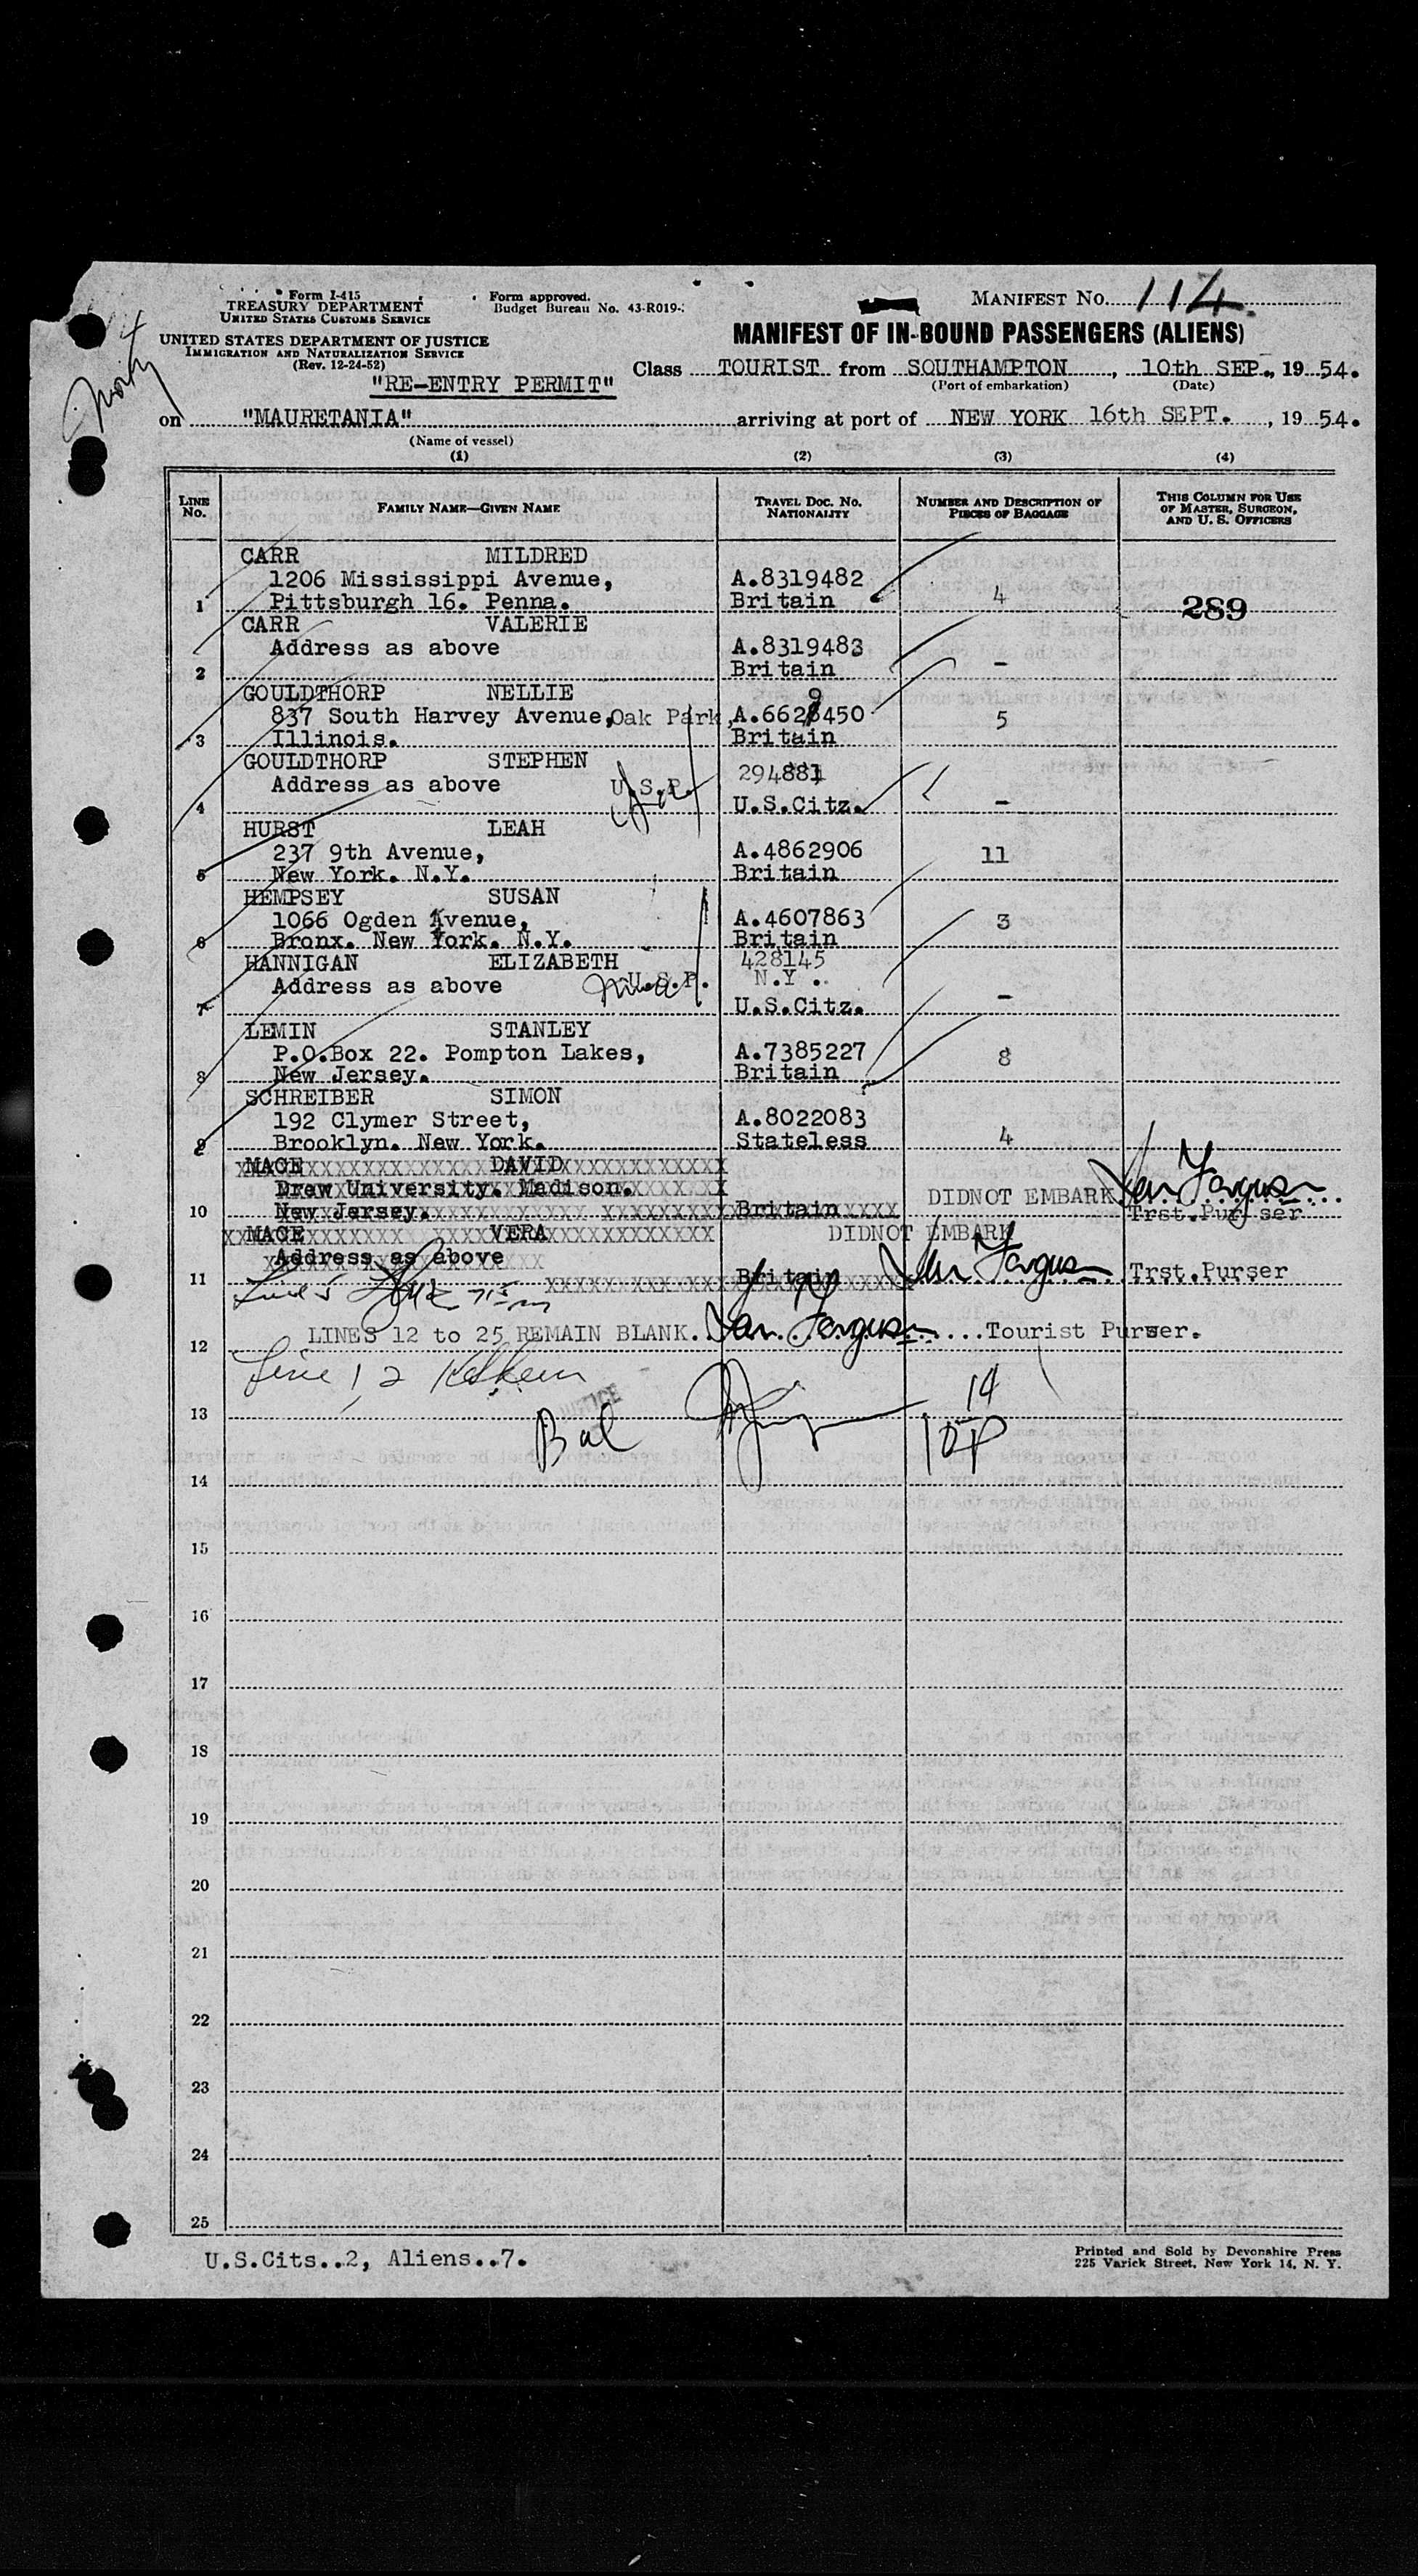 Form I-415
TREASURY DEPARTMENT
UNITED STATES CUSTOMS SERVICE
UNITED STATES DEPARTMENT OF JUSTICE
IMMIGRATION AND NATURALIZATION SERVICE
(Rev. 12-24-52)
Form approved.
Budget Bureau No. 43-R019-
MANIFEST No. 114
MANIFEST OF IN-BOUND PASSENGERS (ALIENS)
"RE-ENTRY PERMIT"
Class TOURIST from SOUTHAMPTON, 10th SEP., 19 54.
(Port of embarkation) (Date)
on "MAURETANIA" arriving at port of NEW YORK 16th SEPT., 19 54.
(Name of vessel)
(1) (2) (3) (4)
LINE No. FAMILY NAME—GIVEN NAME TRAVEL DOC. NO. NATIONALITY NUMBER AND DESCRIPTION OF PIECES OF BAGGAGE THIS COLUMN FOR USE OF MASTER, SURGEON, AND U. S. OFFICERS
CARR MILDRED
1206 Mississippi Avenue, A.8319482
1 Pittsburgh 16. Penna. Britain 4 289
CARR VALERIE
Address as above A.8319483
2 Britain -
GOULDTHORP NELLIE 9
837 South Harvey Avenue, Oak Park, A.6628450 5
3 Illinois. Britain
GOULDTHORP STEPHEN 294881
Address as above U.S.P.
4 U.S.Citz. -
HURST LEAH
237 9th Avenue, A.4862906 11
5 New York. N.Y. Britain
HEMPSEY SUSAN
1066 Ogden Avenue, A.4607863 3
6 Bronx. New York. N.Y. Britain
HANNIGAN ELIZABETH 428145
Address as above U.S.P. N.Y.
7 U.S.Citz. -
LEMIN STANLEY
P.O.Box 22. Pompton Lakes, A.7385227 8
8 New Jersey. Britain
SCHREIBER SIMON
192 Clymer Street, A.8022083
9 Brooklyn. New York. Stateless 4
MACE DAVID
Drew University. Madison. DIDNOT EMBARK Ian Fergusson
10 New Jersey. Britain Trst.Purser
MACE VERA DIDNOT EMBARK
Address as above
11 Britain Ian Fergusson Trst.Purser
LINES 12 to 25 REMAIN BLANK. Ian Fergusson Tourist Purser.
12
Line 1, 2
13 Bal 14
14
15
16
17
18
19
20
21
22
23
24
25
U.S.Cits..2, Aliens..7.
Printed and Sold by Devonshire Press
225 Varick Street, New York 14, N. Y.